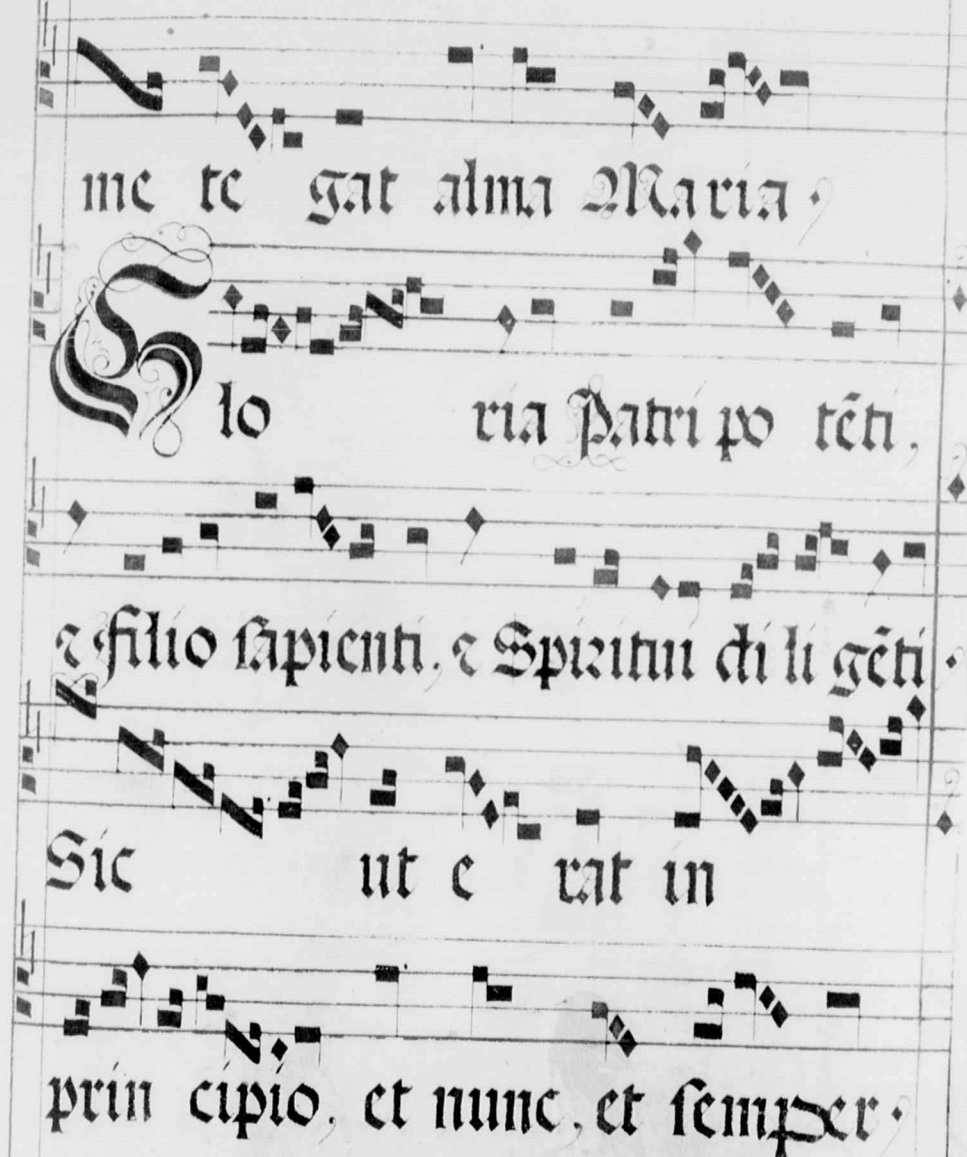 me te gat alma Maria.
Glo ria Patri po tēti,
⁊ filio sapienti, ⁊ Spiritui di li gēti.
Sic ut e rat in
prin cipio, et nunc, et semper.